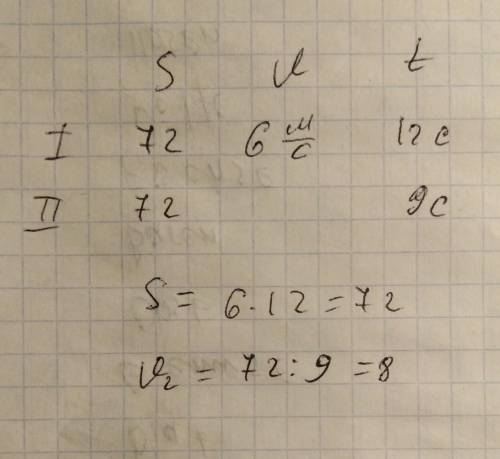 S v t
I 72 6 м/с 12 с
II 72 9 с
S = 6 · 12 = 72
v₂ = 72 : 9 = 8